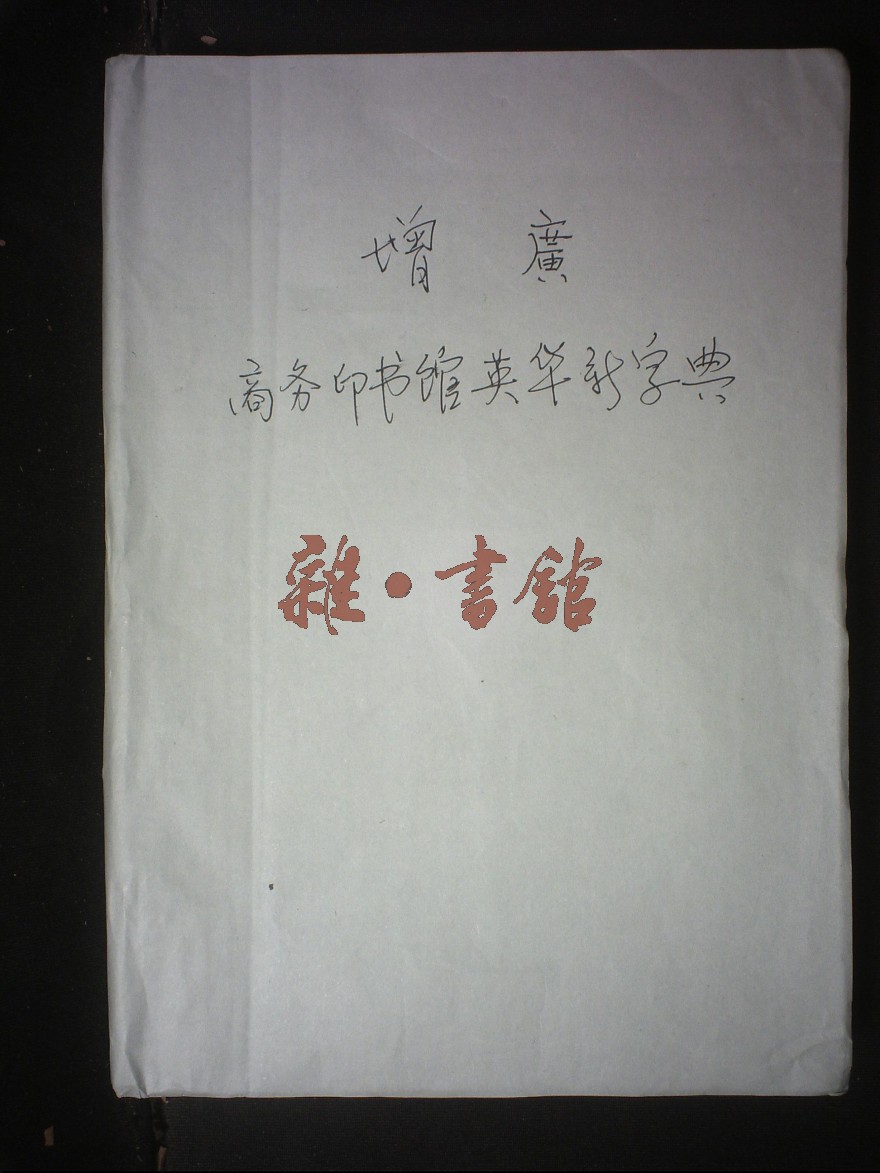 增 廣
商务印书館英华新字典
雜·書館